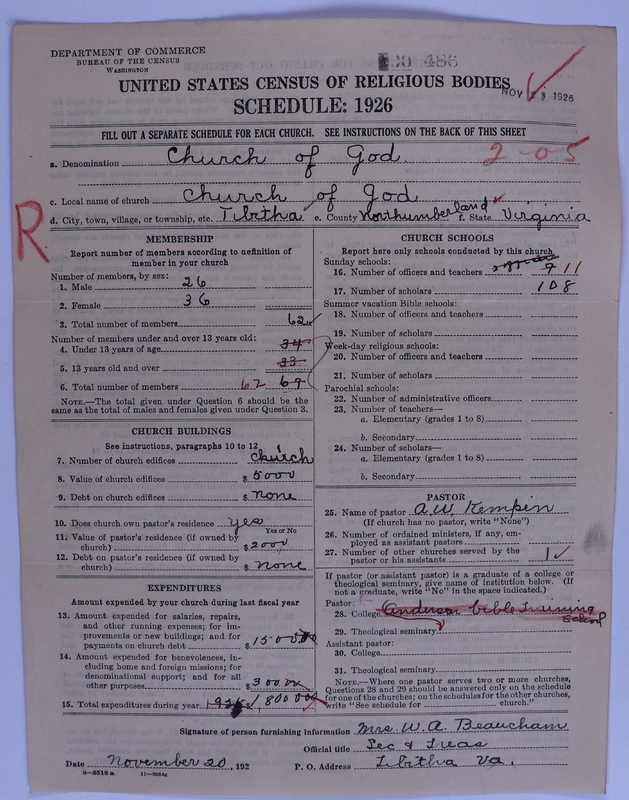 DEPARTMENT OF COMMERCE
BUREAU OF THE CENSUS
WASHINGTON
486
UNITED STATES CENSUS OF RELIGIOUS BODIES
NOV 23 1926
SCHEDULE: 1926
FILL OUT A SEPARATE SCHEDULE FOR EACH CHURCH. SEE INSTRUCTIONS ON THE BACK OF THIS SHEET
a. Denomination Church of God 2-05
c. Local name of church Church of God
d. City, town, village, or township, etc. Tibitha e. County Northumberland f. State Virginia
R
MEMBERSHIP
Report number of members according to definition of
member in your church
Number of members, by sex:
1. Male 26
2. Female 36
3. Total number of members 62
Number of members under and over 13 years old:
4. Under 13 years of age 34
5. 13 years old and over 33
6. Total number of members 62 67
NOTE.—The total given under Question 6 should be
same as the total of males and females given under Question 3.
CHURCH BUILDINGS
See instructions, paragraphs 10 to 12
7. Number of church edifices church
8. Value of church edifices $ 5000
9. Debt on church edifices $ none
10. Does church own pastor's residence yes
Yes or No
11. Value of pastor's residence (if owned by
church) $ 2000
12. Debt on pastor's residence (if owned by
church) $ none
EXPENDITURES
Amount expended by your church during last fiscal year
13. Amount expended for salaries, repairs,
and other running expenses; for im-
provements or new buildings; and for
payments on church debt $ 1500.00
14. Amount expended for benevolences, in-
cluding home and foreign missions; for
denominational support; and for all
other purposes $ 300.00
15. Total expenditures during year $ 1,800 00
CHURCH SCHOOLS
Report here only schools conducted by this church
Sunday schools:
16. Number of officers and teachers 9 11
17. Number of scholars 108
Summer vacation Bible schools:
18. Number of officers and teachers
19. Number of scholars
Week-day religious schools:
20. Number of officers and teachers
21. Number of scholars
Parochial schools:
22. Number of administrative officers
23. Number of teachers—
a. Elementary (grades 1 to 8)
b. Secondary
24. Number of scholars—
a. Elementary (grades 1 to 8)
b. Secondary
PASTOR
25. Name of pastor A.W. Kempen
(If church has no pastor, write "None")
26. Number of ordained ministers, if any, em-
ployed as assistant pastors
27. Number of other churches served by the
pastor or his assistants 1
If pastor (or assistant pastor) is a graduate of a college or
theological seminary, give name of institution below. (If
not a graduate, write "No" in the space indicated.)
Pastor:
28. College Anderson Bible Training
School
29. Theological seminary
Assistant pastor:
30. College
31. Theological seminary
NOTE.—Where one pastor serves two or more churches,
Questions 28 and 29 should be answered only on the schedule
for one of the churches; on the schedules for the other churches,
write "See schedule for church."
Signature of person furnishing information Mrs. W. A. Beaucham
Official title Sec & Treas
Date November 20, 192 P. O. Address Tibitha Va.
8-5518 a 11-9054a